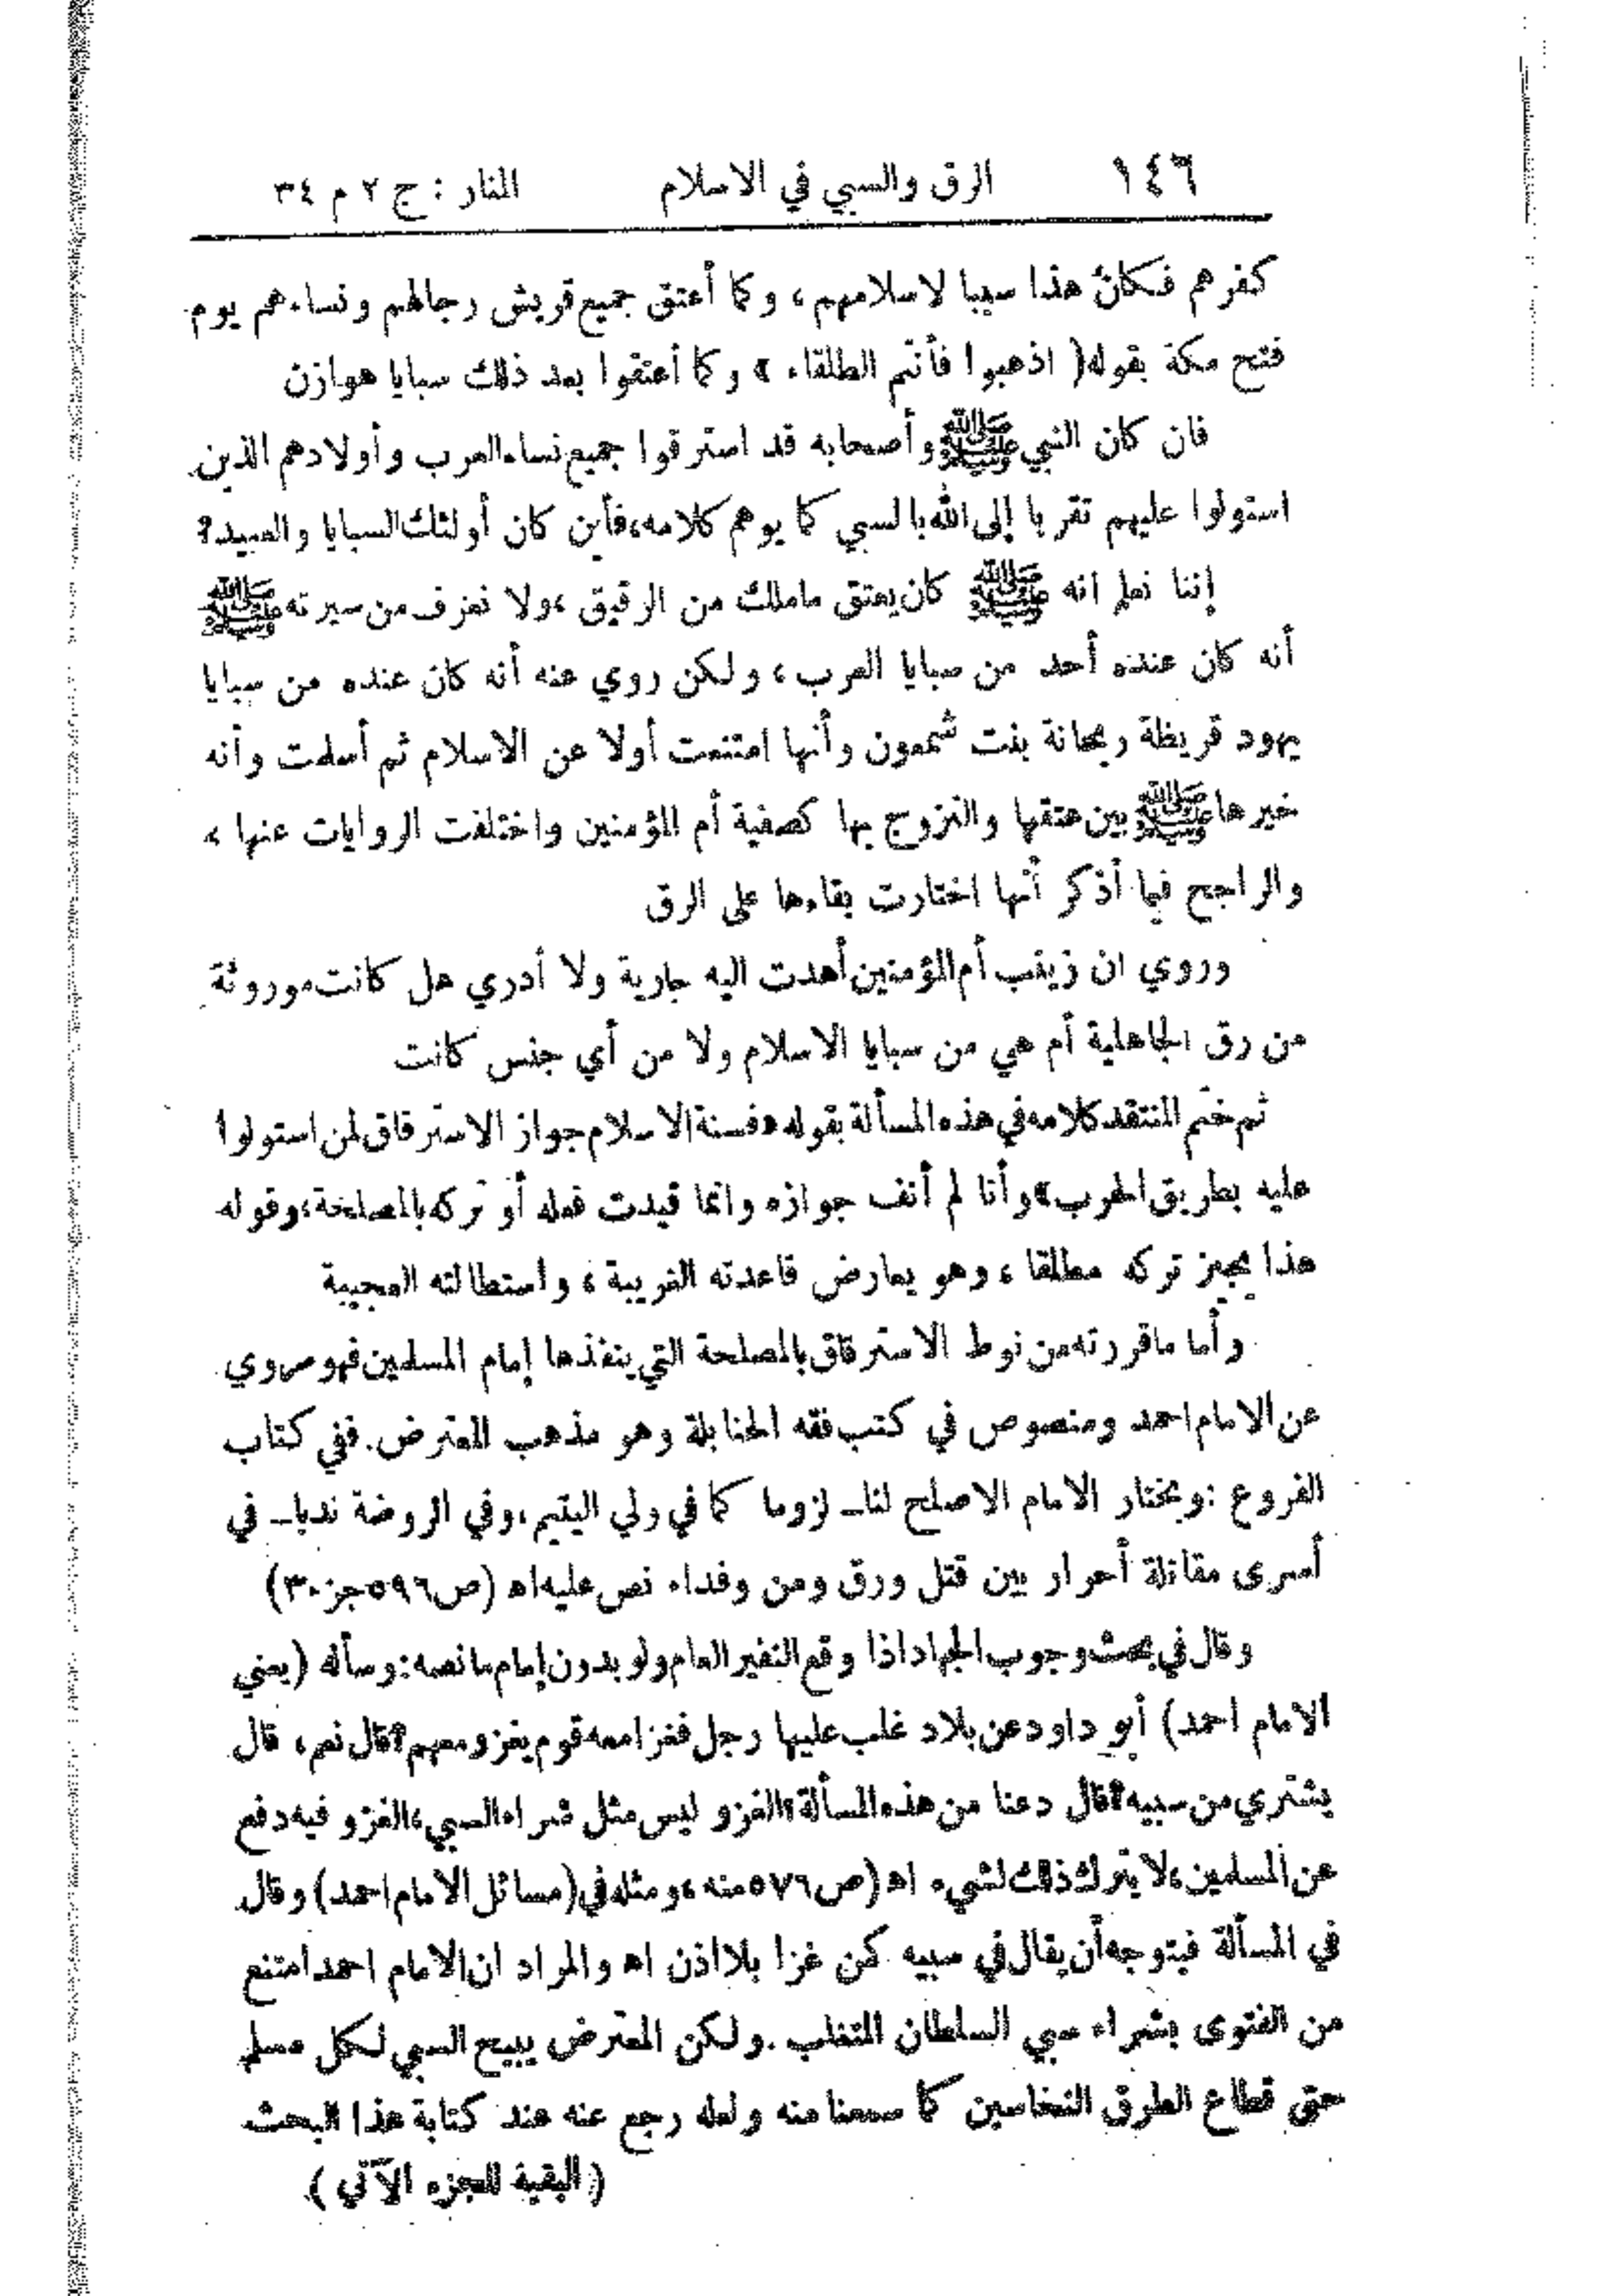 ١٤٦ الرق والسبي في الاسلام المنار : ج ٢ م ٣٤
كفرهم فكان هذا سببا لاسلامهم ، وكما أعتق جميع قريش رجالهم ونساءهم يوم
فتح مكة بقوله ( اذهبوا فأنتم الطلقاء » وكما أعتقوا بعد ذلك سبايا هوازن
فان كان النبي ﷺ وأصحابه قد استرقوا جميع نساء العرب وأولادهم الذين
استولوا عليهم تقربا إلى الله بالسبي كما يوهم كلامه ، فأين كان أولئك السبايا والعبيد ؟
إننا نعلم انه ﷺ كان يعتق ما ملك من الرقيق ، ولا نعرف من سيرته ﷺ
أنه كان عنده أحد من سبايا العرب ، ولكن روي عنه أنه كان عنده من سبايا
يهود قريظة ريحانة بنت شمعون وأنها امتنعت أولا عن الاسلام ثم أسلمت وأنه
خيرها ﷺ بين عتقها والتزوج بها كصفية أم المؤمنين واختلفت الروايات عنها ،
والراجح فيما أذكر أنها اختارت بقاءها على الرق
وروي ان زينب أم المؤمنين أهدت اليه جارية ولا أدري هل كانت موروثة
من رق الجاهلية أم هي من سبايا الاسلام ولا من أي جنس كانت
ثم ختم المنتقد كلامه في هذه المسألة بقوله « فسنة الاسلام جواز الاسترقاق لمن استولوا
عليه بطريق الحرب » وأنا لم أنف جوازه وانما قيدت فعله أو تركه بالمصلحة ، وقوله
هذا يجيز تركه مطلقا ، وهو يعارض قاعدته الغريبة ، واستطالته العجيبة
وأما ما قررته من نوط الاسترقاق بالمصلحة التي ينفذها إمام المسلمين فهو مروي
عن الامام احمد ومنصوص في كتب فقه الحنابلة وهو مذهب المعترض . ففي كتاب
الفروع : ويختار الامام الاصلح لنا ــ لزوما كما في ولي اليتيم ، وفي الروضة ندبا ــ في
أسرى مقاتلة أحرار بين قتل ورق ومن وفداء نص عليه اه (ص ٥٩٦ جزء ٣)
وقال في بحث وجوب الجهاد اذا وقع النفير العام ولو بدون إمام ما نصه : وسأله (يعني
الامام احمد) أبو داود عن بلاد غلب عليها رجل فغزا معه قوم يغزو معهم ؟ قال نعم ، قال
يشتري من سبيه ؟ قال دعنا من هذه المسألة ، الغزو ليس مثل شراء السبي ، الغزو فيه دفع
عن المسلمين ، لا يترك ذلك لشيء اه (ص ٥٧٦ منه ، ومثله في (مسائل الامام احمد) وقال
في المسألة فيتوجه أن يقال في سبيه كمن غزا بلا اذن اه والمراد ان الامام احمد امتنع
من الفتوى بشراء سبي السلطان المتغلب . ولكن المعترض يبيح السبي لكل مسلم
حتى قطاع الطرق النخاسين كما سمعنا منه ولعله رجع عنه عند كتابة هذا البحث
( البقية للجزء الآتي )